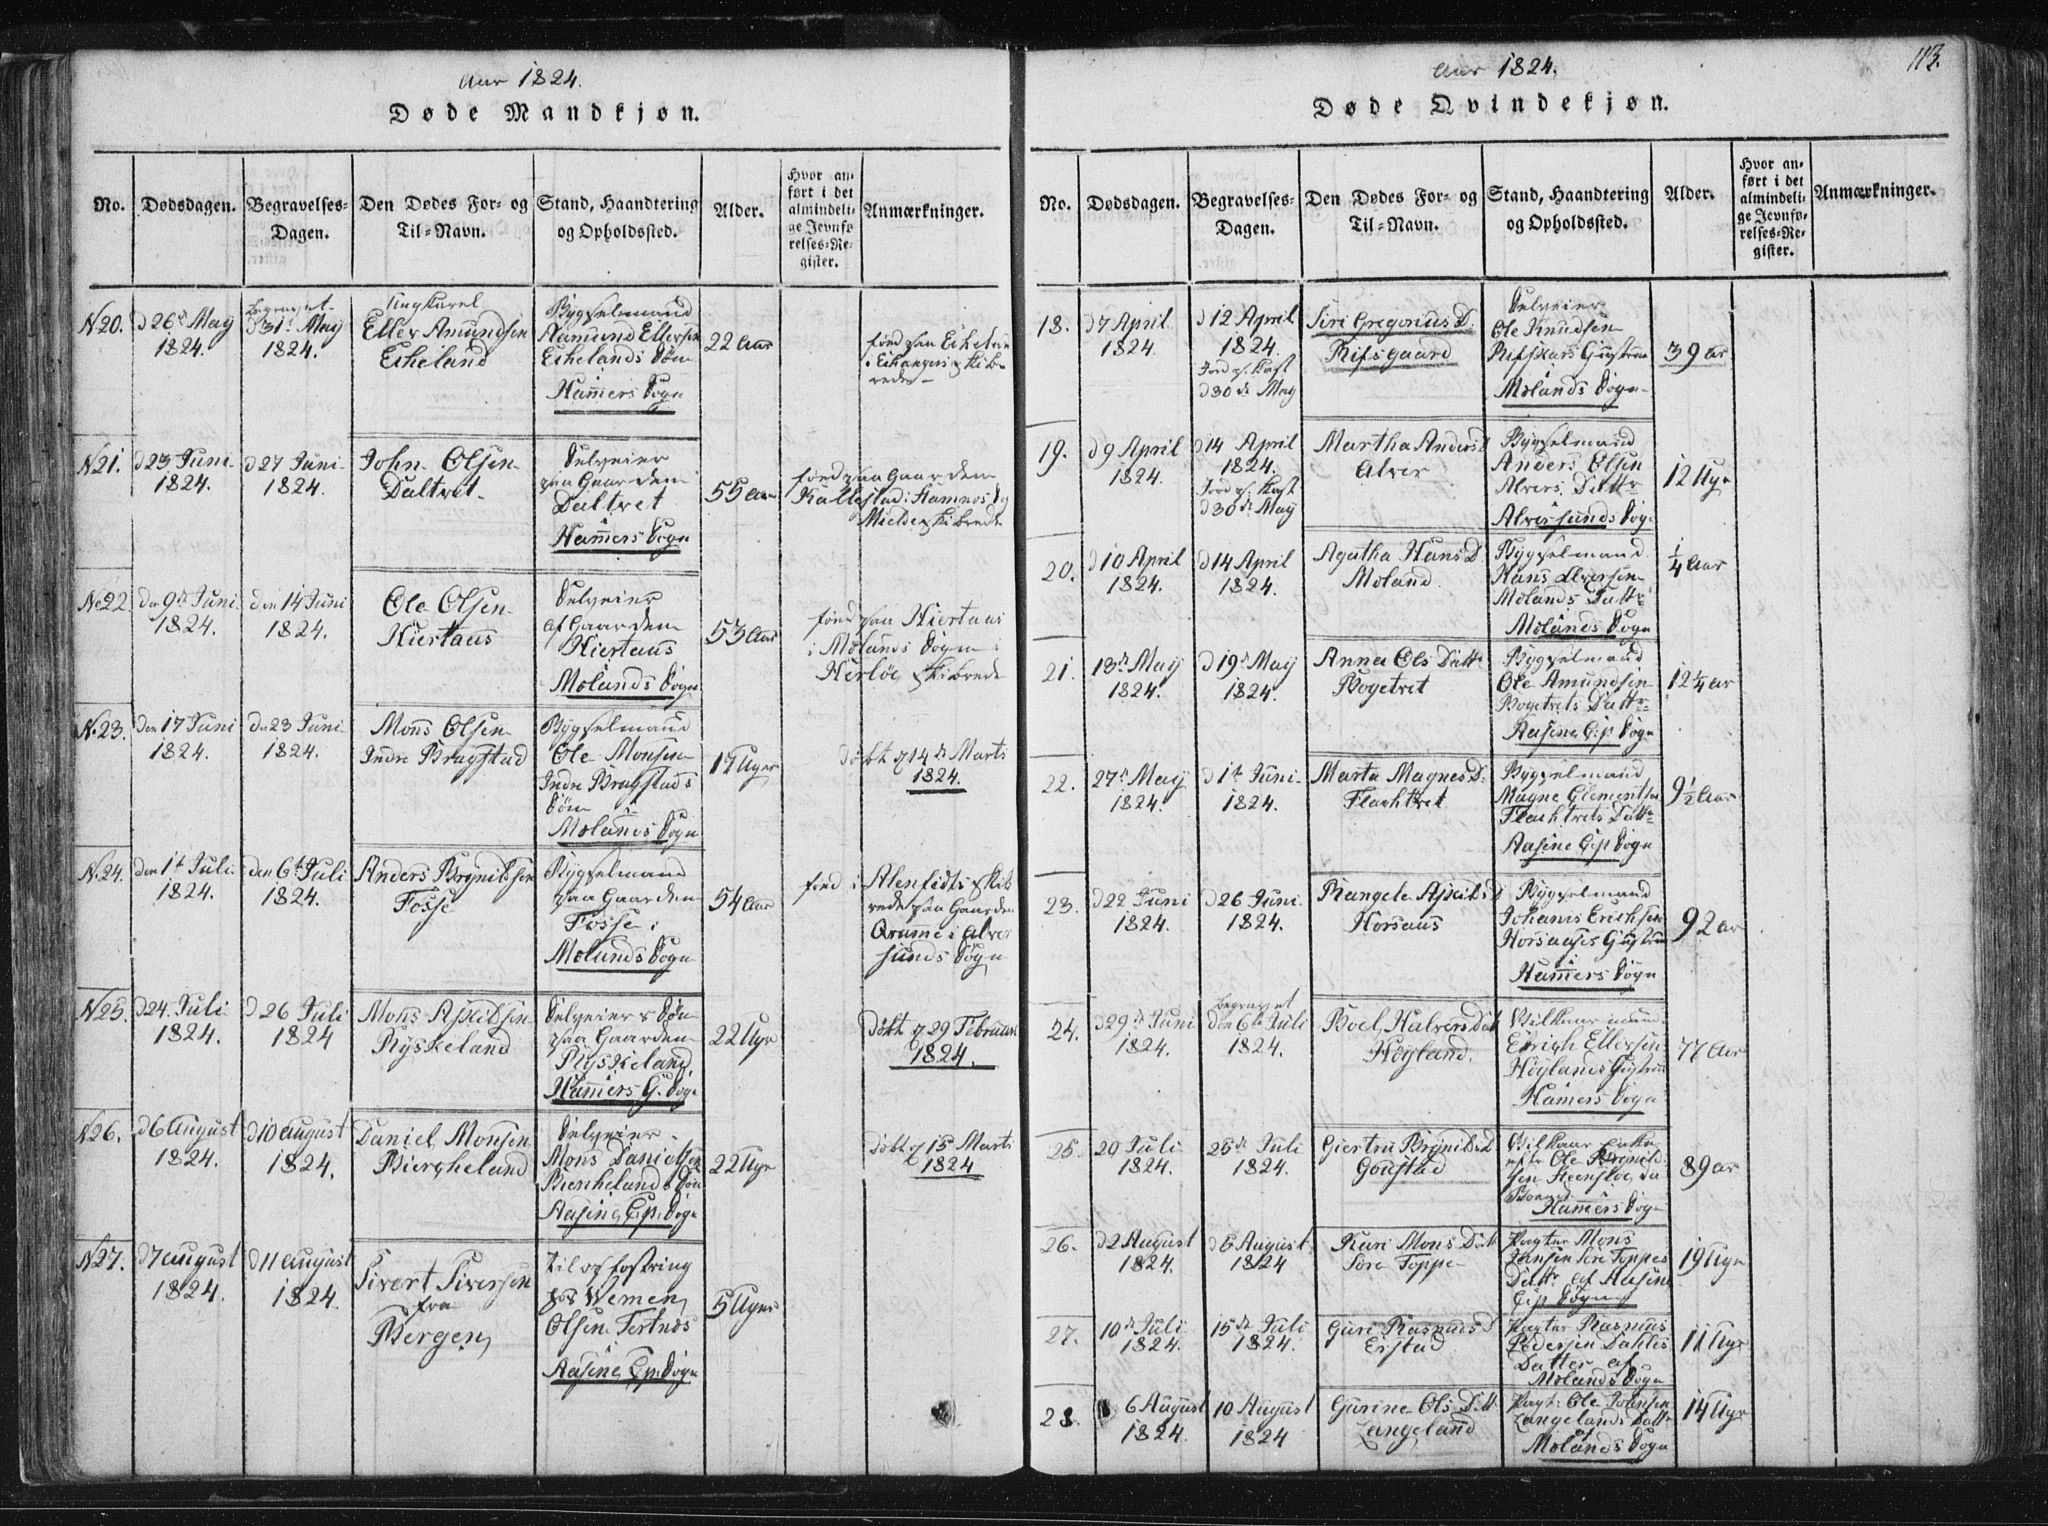 Aar 1824.
Døde Mandkjøn.
No.
Dødsdagen.
Begravelses-
Dagen.
Den Dødes For- og
Til-Navn.
Stand, Haandtering
og Opholdssted.
Alder.
Hvor an-
ført i det
almindeli-
ge Jevnfø-
relses-Re-
gister.
Anmærkninger.
N20.
d 26de May
1824.
begravet
d 31te May
1824.
Ungkarel
Eller Amundsen
Eikeland
Bygselmand
Aamund Ellersen
Eikelands Søn
Hammers Sogn
22 Aar
fød paa Eikeland
i Eikangers Skib-
rede
N21.
d 23 Juni
1824.
d 27 Juni
1824.
John Olsen
Daltvet
Selveier
paa Gaarden
Daltvet
i
Hammers Sogn
55 Aar
fød paa Gaarden
Kallestad i Hammers Sog
Mielde Skibrede
No 22
den 9de Juni
1824.
den 14 Juni
1824.
Ole Olsen
Hiertaas
Selveier
af Gaarden
Hiertaas
i
Molands Sogn
53 Aar
fød paa Hiertaas
i Molands Sogn i
Herløe Skibrede
N.23.
den 17 Juni
1824.
den 23 Juni
1824.
Mons Olsen
Indre Bragstad
Bygselmand
Ole Monsen
Indre Bragstads
Søn i
Molands Sogn
17 Uger
døbt d 14de Marts
1824.
N.24.
den 1te Juli
1824.
den 6te Juli
1824.
Anders Brynildsen
Fosse
Bygselmand
paa Gaarden
Fosse i
Molands Sogn
54 Aar
fød i Alenfidts Skib
rede paa Gaarden
Qvamme i Alver
sunds Sogn
N25.
d 24. Juli
1824.
d 26 Juli
1824
Mons Askildsen
Ryskeland
Selveiers Søn
paa Gaarden
Ryskeland
i
Hammers G. Sogn
22 Uger
døbt d 29 Februar
1824.
N26.
d 6 August
1824.
d 10 August
1824.
Daniel Monsen
Biergheland
Selveier
Mons Danielsen
Biergheland Søn
Aasene Gip. Sogn
22 Uger
døbt d 15 Marts
1824
N27.
d 7 August
1824.
d 11 August
1824.
Sivert Siversen
fra
Bergen
til opfostring
hos
Olsen Tertnæs
Aasene Gp. Sogn
5 Uger
113.
Aar 1824.
Døde Qvindekjøn.
No.
Dødsdagen.
Begravelses-
Dagen.
Den Dødes For- og
Til-Navn.
Stand, Haandtering
og Opholdssted.
Alder.
Hvor an-
ført i det
almindeli-
ge Jevnfø-
relses-Re-
gister.
Anmærkninger.
18.
d 7 April
1824.
d 12 April
1824.
Jord p. Kast
d 30de May
Siri Gregorius D.
Rifsgaard
Selveier
Ole Knudsen
Gustrue
Molands Sogn
39 ar
19.
d 9 April
1824.
d 14 April
1824.
Jord p. Kast
d 30de May
Martha Anders D
Alver
Bygselmand
Anders Olsen
Alvers Datter
i
Alversunds Sog
12 Uger
20.
d 10 April
1824.
d 14 April
1824.
Agatha Hans D
Moland.
Bygselmand
Hans Iversen
Molands Datter
i
Molands Sogn
1/4 Aar
21.
13de May
1824.
d 19de May
1824.
Anna Ols Datter
Bogetvet
Bygselmand
Ole Amundsen
Bogetvets Datter
Aasene Gip. Sogn
12 1/4 ar
22.
27de May
1824.
d 1te Juni
1824.
Marta Magnes D.
Flachtvet
Bygselmand
Magne Clementsen
Flachtvets Datter
Aasene Gip Sogn
9 1/2 Aar
23.
d 22 Juni
1824.
d 26 Juni
1824.
Rangele Askilds D
Horsaas
Bygselmand
Johanis Erichsen
Horsaases Gustrue
i
Hammers Sogn
92 ar
24.
d 29de Juni
1824.
begravet
den 6te Juli
1824.
Boel Halvers Dat
Höyland.
Vilkaarmand
Erich Ellersen
Höylands Gustrue
Hamers Sogn
77 Aar
25.
20 Juli
1824.
25de Juli
1824.
Giertru Brynilds D
Goustad
Vilkaar enke
efter Ole Brynild-
sen
i
Hamers Sogn
89 ar
26.
d 2 August
1824.
d 5 August
1824
Kari Mons Datt
Søre Toppe
Pagter Mons
Jansen Søre Toppes
Datter af Aasene
Gip Sogn
19 Uger
27.
10de Juli
1824.
15de Juli
1824.
Guri Rasmus D
Eistad
Pagter Rasmus
Pedersen Dahles
Datter af
Molands Sogn
11 Uger
28.
6 August
1824.
10 August
1824
Gurine Ols Datt.
Langeland
Pagt. Ole Johnsen
Langelands Datter
af
Molands Sogn
14 Uger